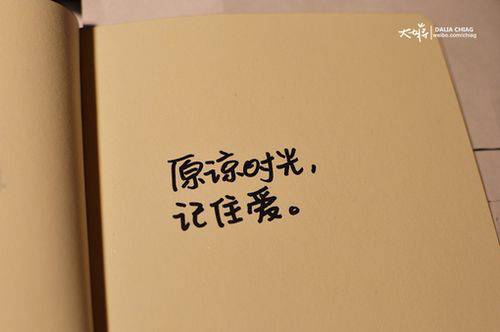 DALIA CHIAG
weibo.com/chiag
原谅时光，
记住爱。